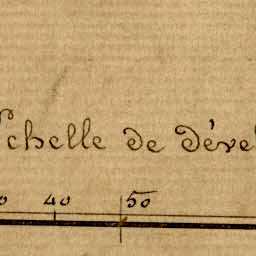 chelle de déve
0 40 50